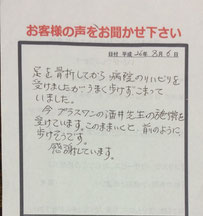 お客様の声をお聞かせ下さい
日付 平成 26年 3月 6日
足を骨折してから病院のリハビリを
受けましたが、うまく歩けず、こまって
いました。
今プラスワンの酒井先生の施術を
受けています。このままいくと、前のように、
歩けそうです。
感謝しています。